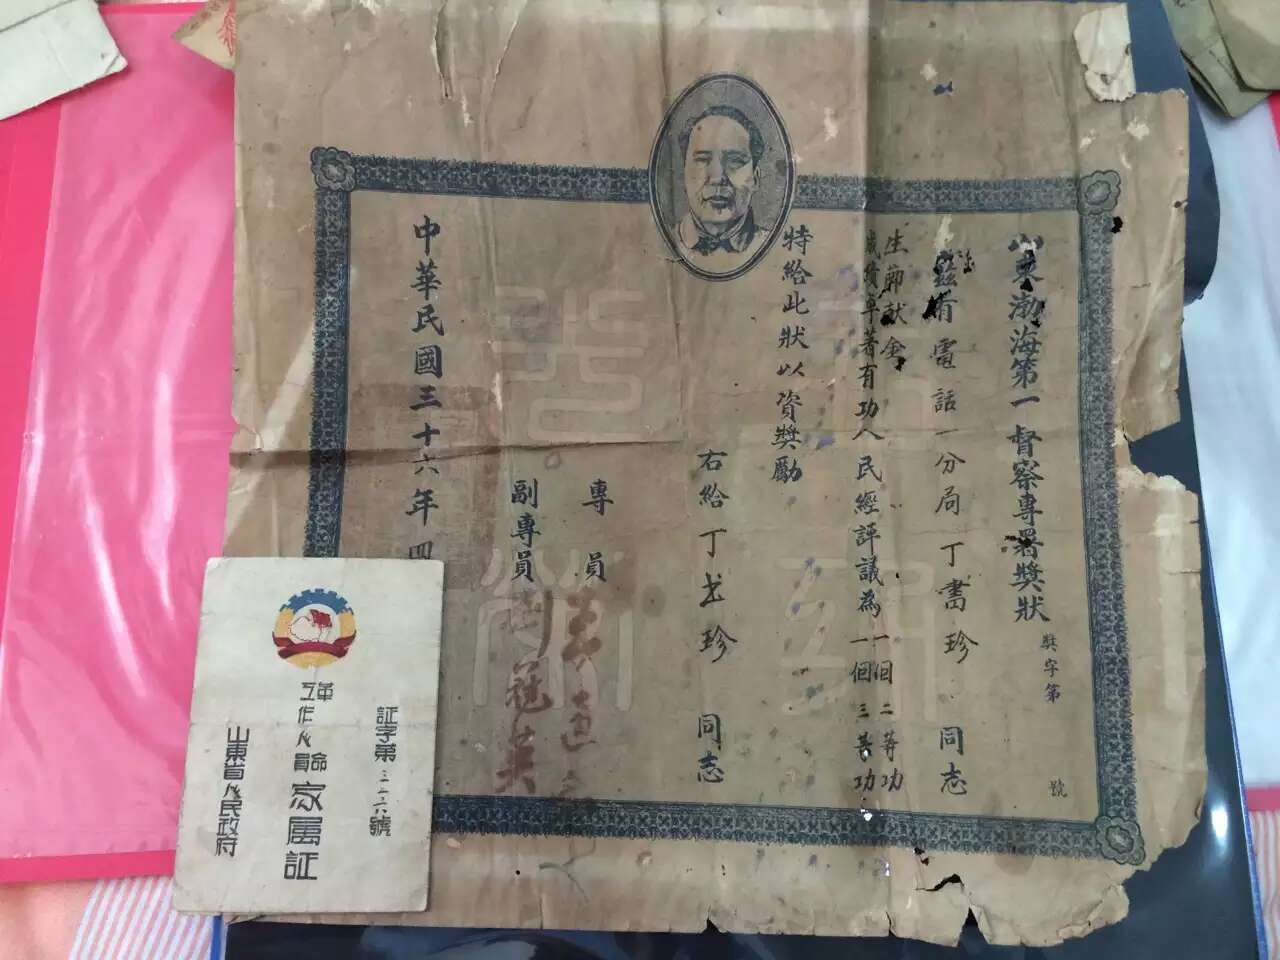 山東渤海第一督察專署獎狀
獎字第 號
茲有電話一分局丁書珍同志
生節献金
成績卓著有功人民經評議為一個二等功
一個三等功
特給此狀以資獎勵
右給丁书珍同志
專員
副專員
中華民國三十六年四
証字第三二六號
革命
工作人員
家属証
山東省人民政府